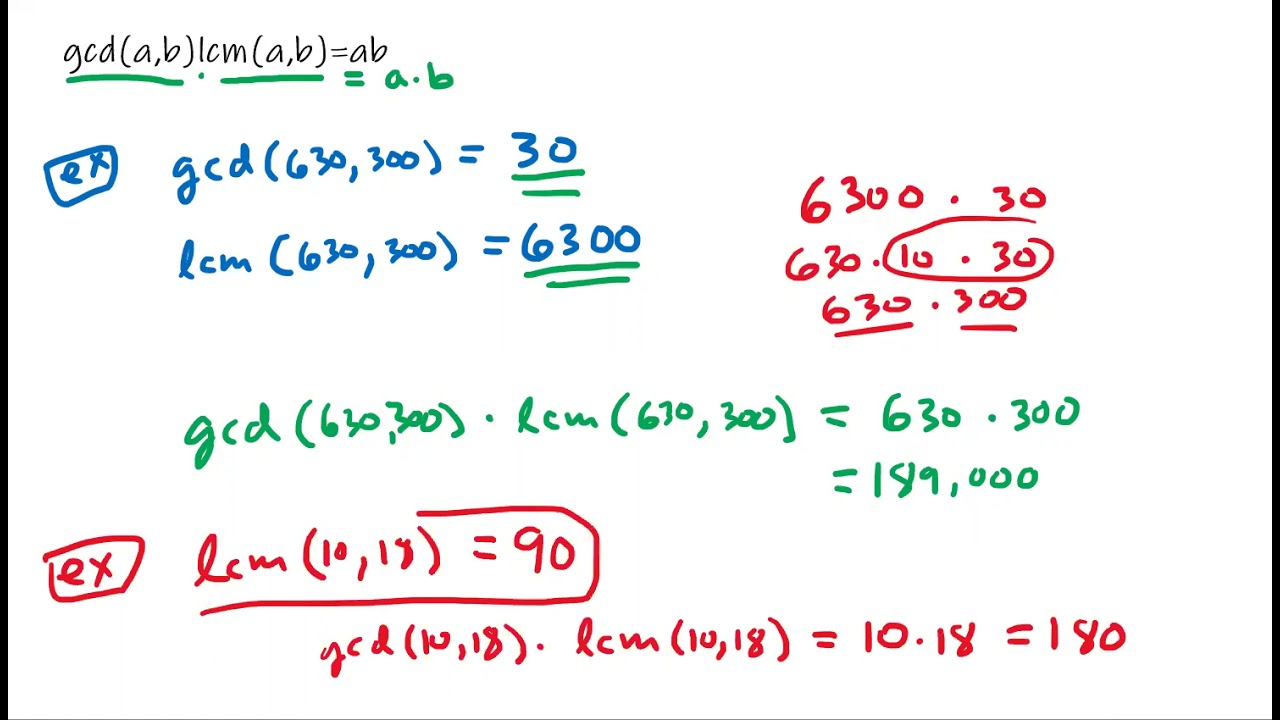 gcd(a,b)lcm(a,b)=ab
· = a·b
ex gcd(630,300) = 30
lcm (630,300) = 6300
6300 · 30
630 · 10 · 30
630 · 300
gcd(630,300) · lcm(630,300) = 630 · 300
= 189,000
ex lcm(10,18) = 90
gcd(10,18) · lcm(10,18) = 10·18 = 180